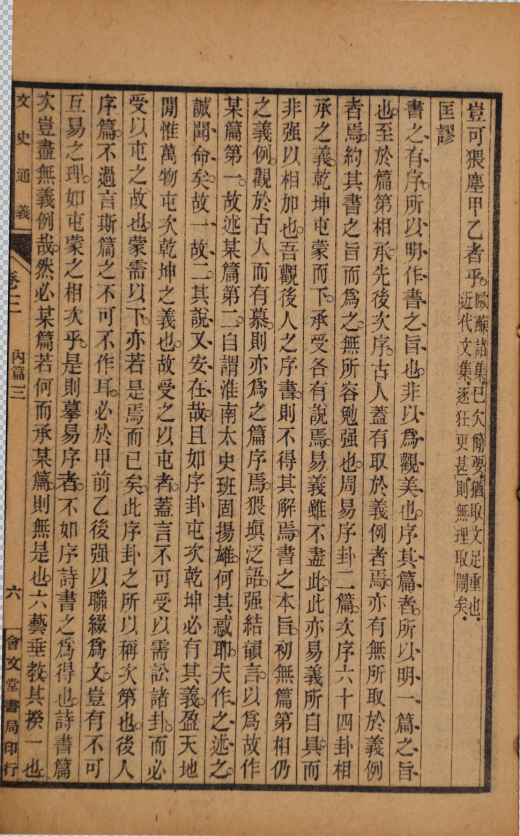 豈可猥塵甲乙者乎。歐蘇諸集、已欠簡要、猶取文足重也、
近代文集、逐狂更甚、則無理取鬧矣、
匡謬
書之有序。所以明作書之旨也。非以爲觀美也。序其篇者。所以明一篇之旨
也。至於篇第相承。先後次序。古人蓋有取於義例者焉。亦有無所取於義例
者焉。約其書之旨而爲之。無所容勉強也。周易序卦二篇。次序六十四卦相
承之義。乾坤屯蒙而下。承受各有說焉。易義雖不盡此。此亦易義所自具。而
非强以相加也。吾觀後人之序書。則不得其解焉。書之本旨。初無篇第相仍
之義例。觀於古人而有慕。則亦爲之篇序焉。猥塡泛語。强結韻言。以爲故作
某篇第一。故述某篇第二。自謂淮南太史班固揚雄。何其惑耶。夫作之述之。
誠聞命矣。故一故二。其說又安在哉。且如序卦屯次乾坤必有其義。盈天地
閒惟萬物屯次乾坤之義也。故受之以屯者。蓋言不可受以需訟諸卦。而必
受以屯之故也。蒙需以下。亦若是焉而已矣。此序卦之所以稱次第也。後人
序篇。不過言斯篇之不可不作耳。必於甲前乙後。强以聯綴爲文。豈有不可
互易之理。如屯蒙之相次乎。是則摹易序者。不如序詩書之爲得也。詩書篇
次豈盡無義例哉。然必某篇若何而承某篇。則無是也。六藝垂教。其揆一也。
文史通義
卷三
內篇三
六
會文堂書局印行